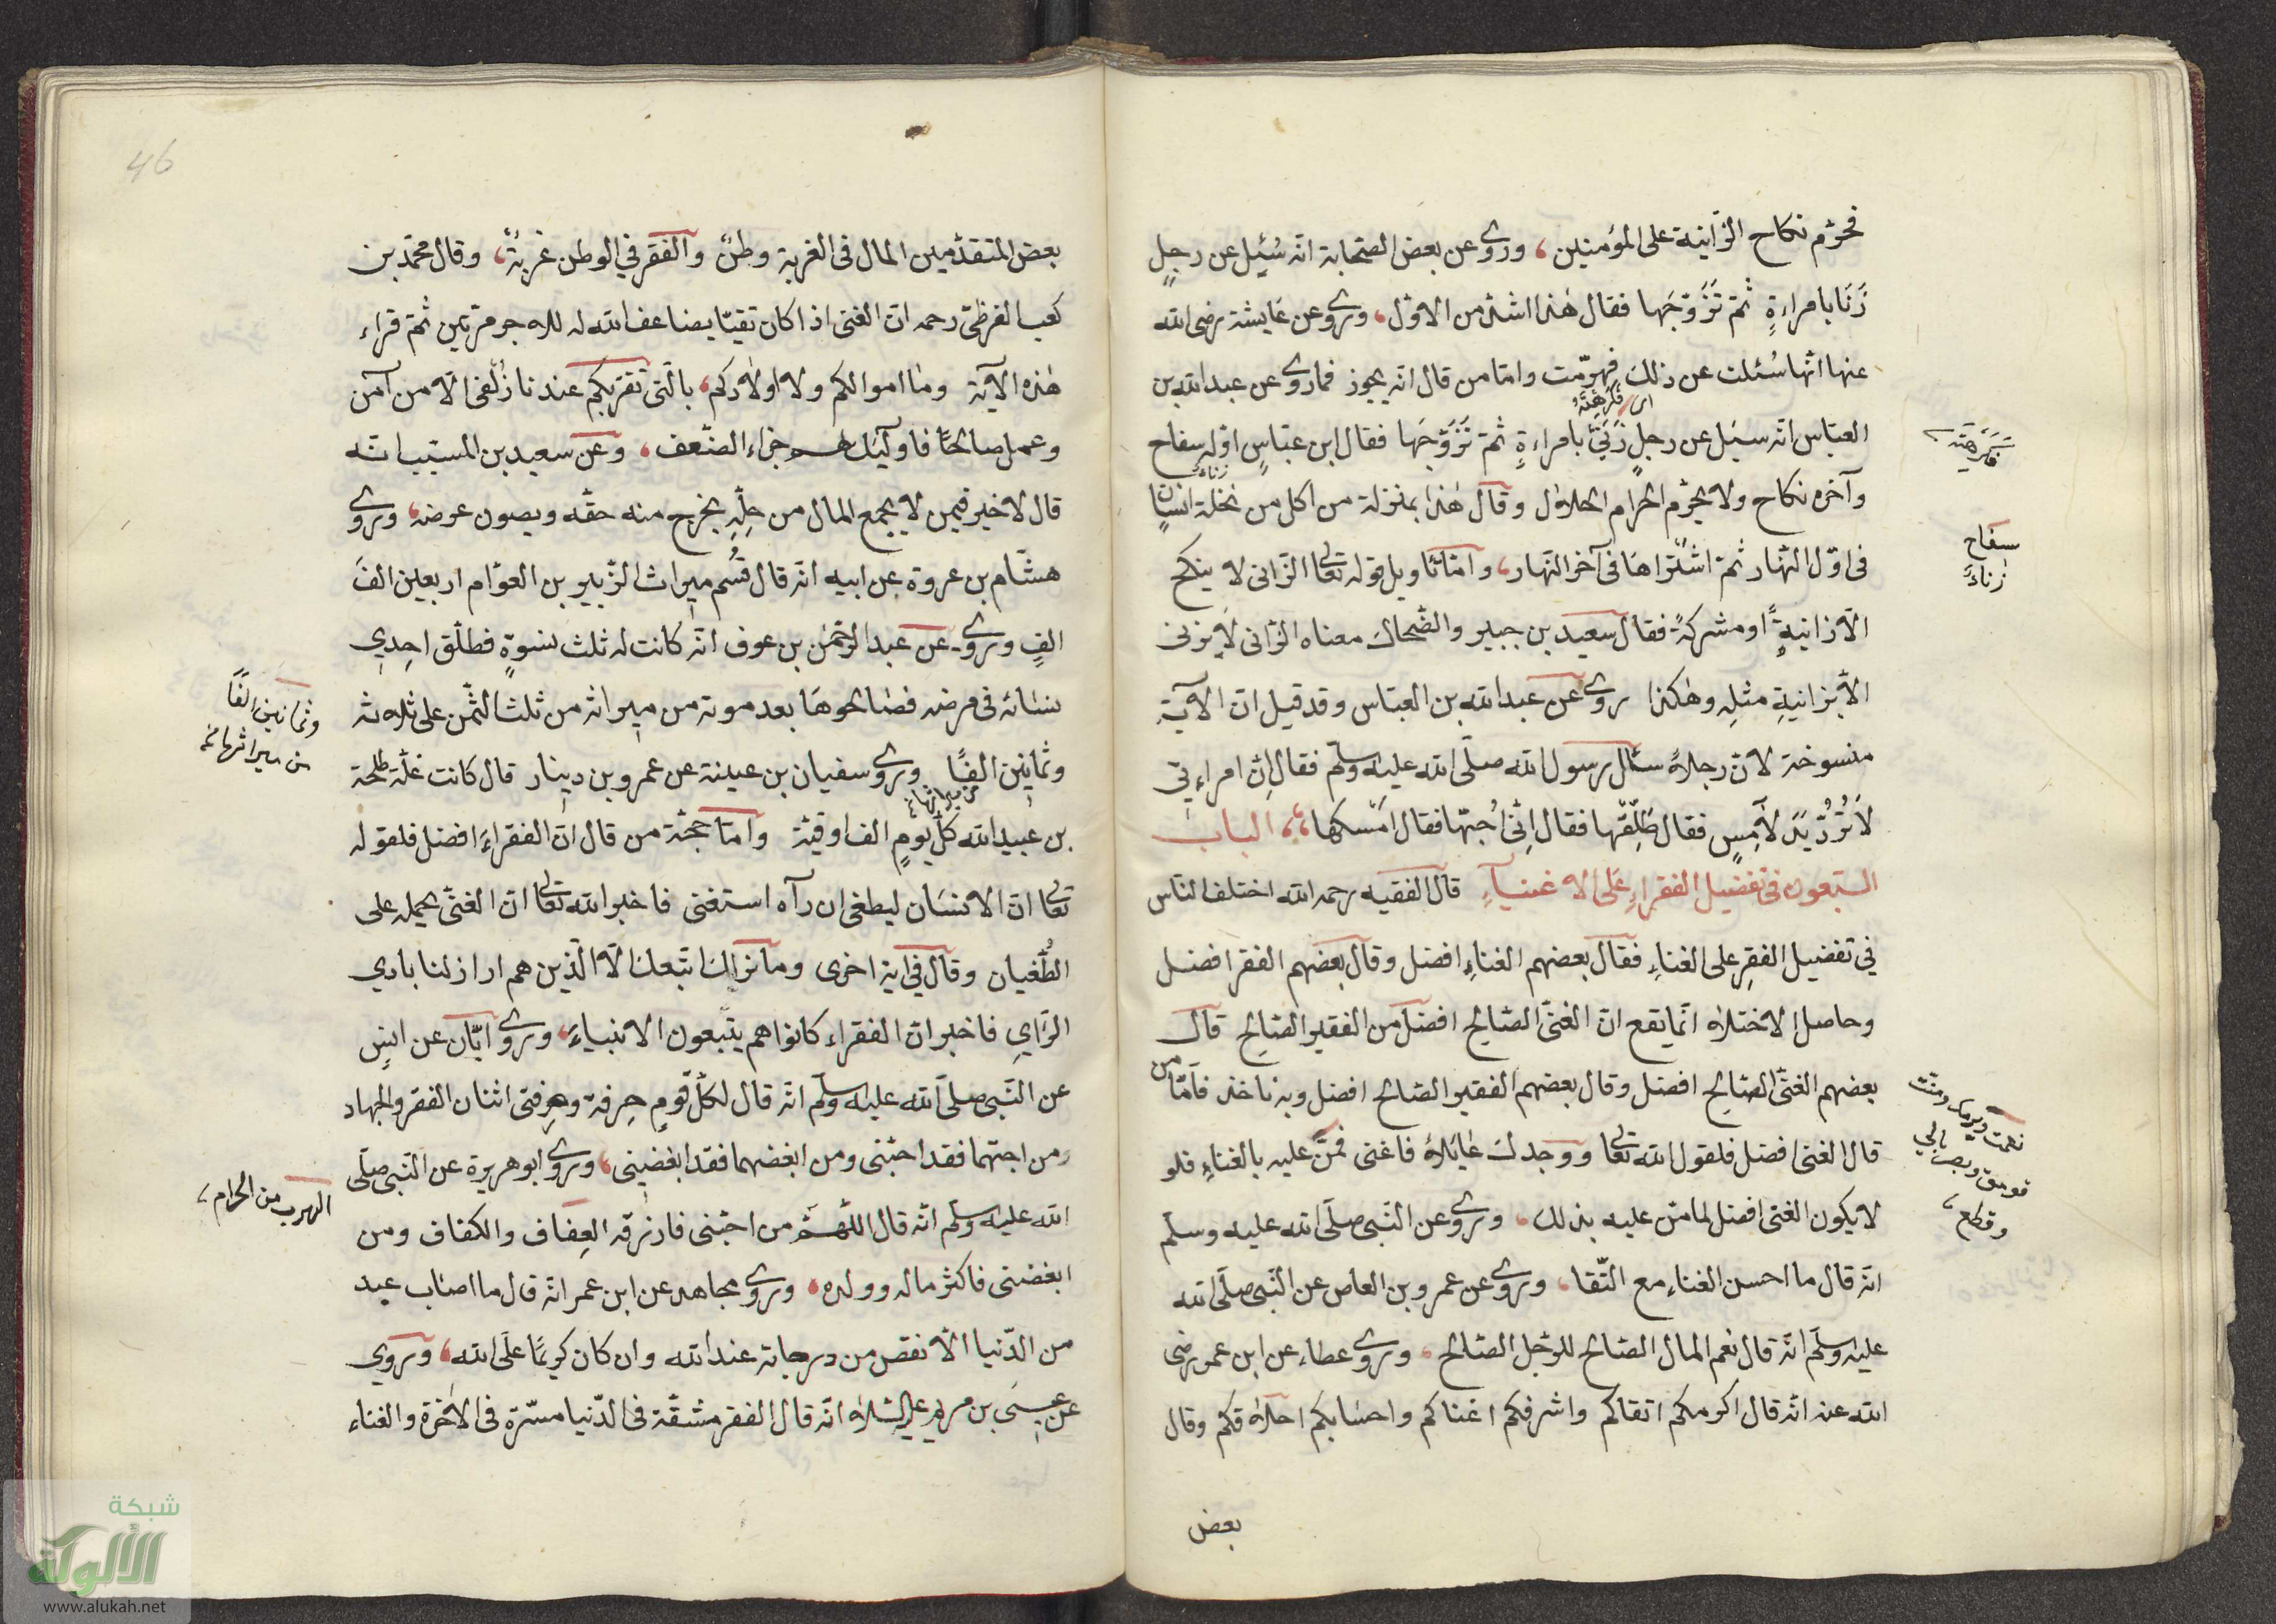 فحرّم نكاح الزّانية على المؤمنين، وروى عن بعض الصّحابة انّه سُئِل عن رجلٍ
زَنَا بامراءةٍ ثمّ تَزَوّجَها فقال هٰذا اشدّ من الاوّل، وروى عن عايشة رضى الله
عنها انّها سُئلت عن ذلك فهرمّت وامّا من قال انّه يجوز فماروى عن عبد الله بن
اى فَكَرِهَتْهُ
العبّاس انّه سئل عن رجلٍ زَنَىٰ بامراءةٍ ثمّ تَزَوَّجَها فقال ابن عبّاسٍ اوّله سفاح
زناء
وآخره نكاح ولا يحرّم الحرام الحلال وقال هٰذا بمنزلة من اكل من نخلة انسانٍ
فى اوّل النّهار ثمّ اشتراها فى آخر النّهار، وامّا تاويل قوله تعالى الزّانى لا ينكح
الّا زانيةً او مشركةً فقال سعيد بن جبير والضّحاك معناه الزّانى لا يزنى
الّا بزانيةٍ مثله وهٰكذا روى عن عبد الله بن العبّاس وقد قيل ان الآية
منسوخة لانّ رجلاً سئال رسول الله صلّى الله عليه وسلّم فقال انّ امراءتى
لا تُرُدُّ يَدَ لاَمِسٍ فقال طَلِّقْها فقال انّى اُحبّها فقال امْسكها، الباب
السّبعون فى تفضيل الفقراءِ عَلى الاغنياءِ قال الفقيه رحمه الله اختلف النّاس
فى تفضيل الفقرِ على الغناءِ فقال بعضهم الغناءِ افضل وقال بعضهم الفقر افضل
وحاصل الاختلاف انّما يقع انّ الغنّى الصّالح افضل من الفقير الصّالح قال
بعضهم الغنّى الصّالح افضل وقال بعضهم الفقير الصّالح افضل وبه ناخذ فَامّا من
قال الغنى افضل فلقول الله تعالى ووجدك عائلاً فاغنى فمنّ عليه بالغناءِ فلو
لا يكون الغنى افضل لما منّ عليه بذلك، وروى عن النّبى صلّى الله عليه وسلّم
انّه قال ما احسن الغناء مع التّقا، وروى عن عمرو بن العاص عن النّبى صلّى الله
عليه وسلّم انّه قال نعم المال الصّالح للرّجل الصّالح، وروى عطاء عن ابن عمر رضى
الله عنه انّه قال اكرمكم اتقاكم واشرفكم اغناكم واحسابكم اخلاقكم وقال
بعض
فَكَرِهتْه
سِفاح
زناءً
وقطع
46
بعض المتقدّمين المال فى الغربة وطنٌ والفقر فى الوطن غربةٌ، وقال محمّد بن
كعب القرظىّ رحمه انّ الغنى اذا كان تقيّا يضاعف الله له للاجر مرّتين ثمّ قراء
هٰذه الآية وما اموالكم ولا اولادكم بالّتى تقرّبكم عندنا زُلفى الّا من آمن
وعمل صالحًا فاولئك لهم جزاء الضّعف، وعن سعيد بن المسيّب انّه
قال لا خير فيمن لا يجمع المال من حِلّهِ يخرج منه حقّه ويصون عرضه، وروى
هشّام بن عروة عن ابيه انّه قال قُسم ميراث الزّبير بن العوّام اربعين الفَ
الفٍ وروى عن عبد الرّحمٰن بن عوف انّه كانت له ثلث نسوةٍ فطلّق احدى
نسائه فى مرضه فصٰالحوها بعد موته من ميراثه من ثلث الثّمن على ثلاثه
وثمانين الفًا وروى سفيان بن عيينة عن عمرو بن دينار قال كانت غلّة طلحة
من ميراثها
بن عبيد الله كلّ يومٍ الف اوقيّة وامّا حجّة من قال انّ الفقراءِ افضل فلقوله
تعالى انّ الانسان ليطغى ان رآه استغنى فاخبر الله تعالى انّ الغنّى يحمله على
الطُّغيان وقال فى اية اخرى وما نراك اتّبعك الّا الّذين هم اراذلنا بادي
الرّايِ فاخبر انّ الفقراء كانوا هم يتّبعون الانبياءَ، وروى ابّان عن انسٍ
عن النّبى صلّى الله عليه وسلّم انّه قال لكلّ قومٍ حِرفة وحِرفتى اثنان الفقر والجهاد
ومن احبّهما فقد احبّنى ومن ابغضهما فقد ابغضنى، وروى ابو هريرة عن النّبى صلّى
الله عليه وسلّم انّه قال اللّٰهمّ من احبّنى فارزقه العِفاف والكفاف ومن
ابغضنى فاكثر ماله وولده، وروى مجاهد عن ابن عمر انّه قال ما اصاب عبد
من الدّنيا الّا نقص من درجاته عند الله وان كان كريمًا على الله، وروى
عن عيسى بن مريم عليه السّلام انّه قال الفقر مشقّة فى الدّنيا مسّرة فى الآخرة والغناء
وثمانين الفًا
من ميراثها
الهرب من الحرام
شبكة
الألوكة
www.alukah.net